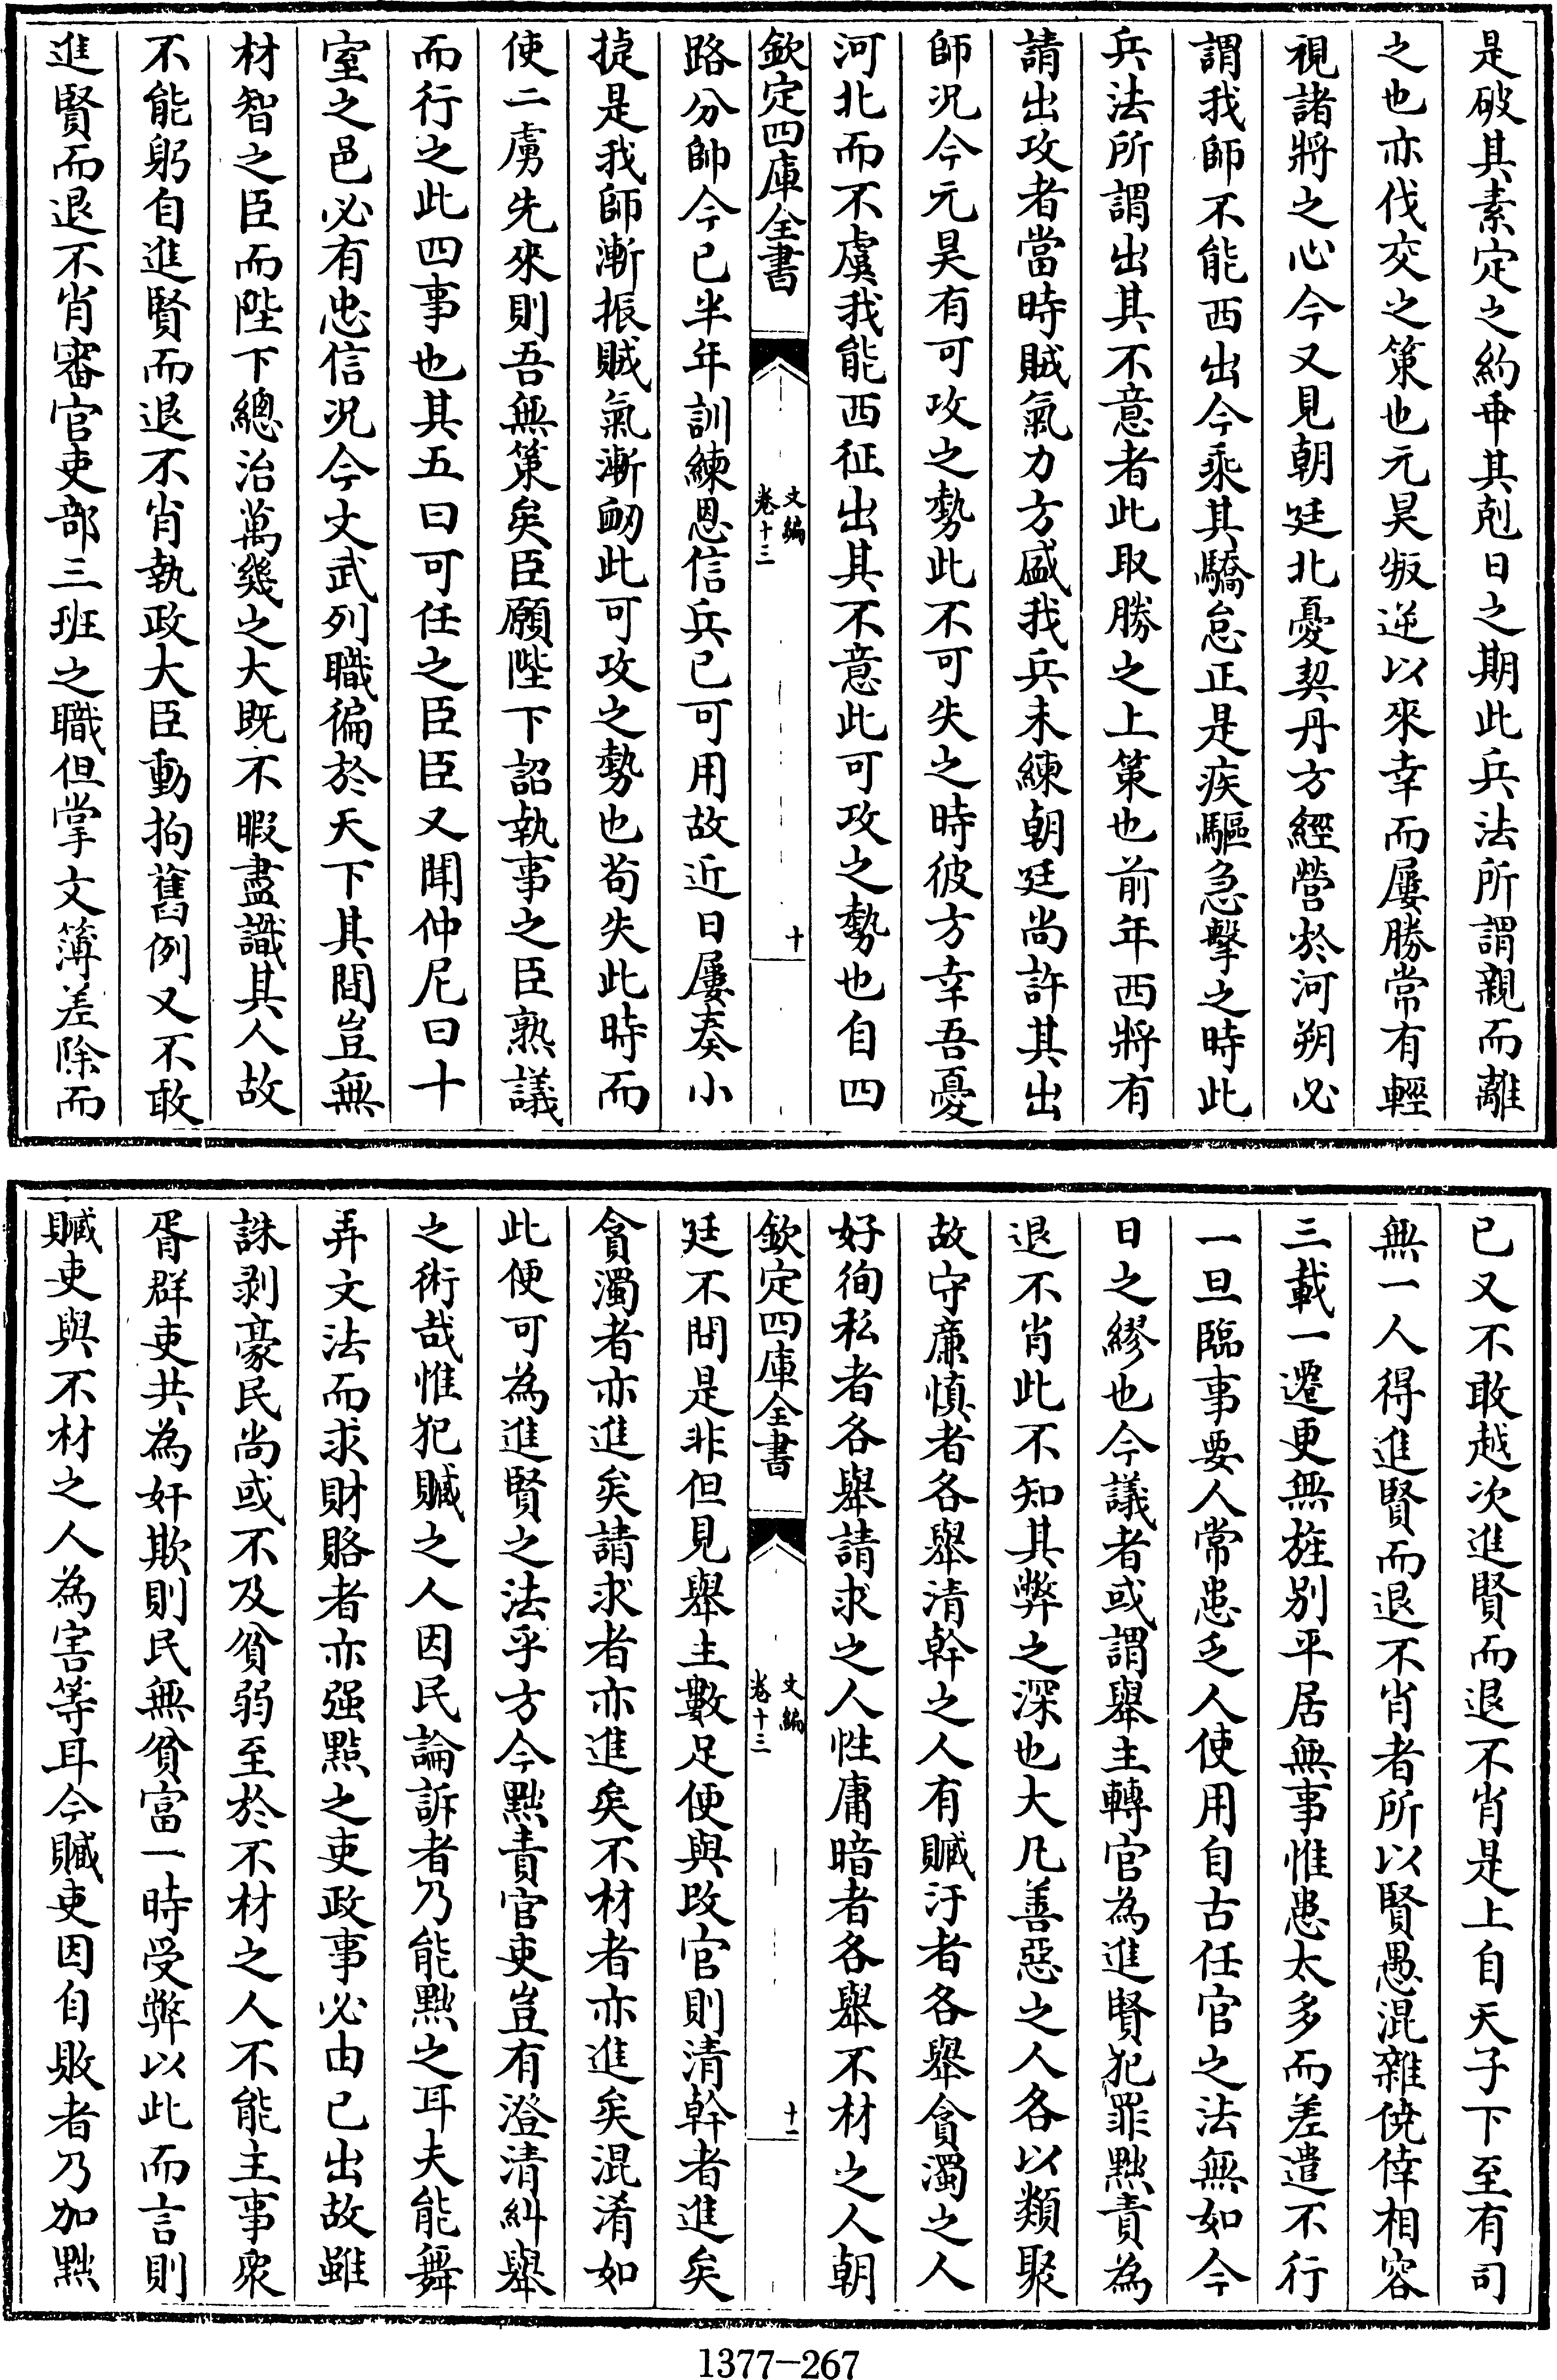 是破其素定之約乖其剋日之期此兵法所謂親而離
之也亦伐交之策也元昊叛逆以來幸而屢勝常有輕
視諸將之心今又見朝廷北憂契丹方經營於河朔必
謂我師不能西出今乘其驕怠正是疾驅急擊之時此
兵法所謂出其不意者此取勝之上策也前年西將有
請出攻者當時賊氣力方盛我兵未練朝廷尚許其出
師况今元昊有可攻之勢此不可失之時彼方幸吾憂
河北而不虞我能西征出其不意此可攻之勢也自四
欽定四庫全書
文編
卷十三
十
路分帥今已半年訓練恩信兵已可用故近日屢奏小
捷是我師漸振賊氣漸衂此可攻之勢也苟失此時而
使二虜先來則吾無策矣臣願陛下詔執事之臣熟議
而行之此四事也其五曰可任之臣臣又聞仲尼曰十
室之邑必有忠信况今文武列職徧於天下其間豈無
材智之臣而陛下總治萬幾之大既不暇盡識其人故
不能躬自進賢而退不肖執政大臣動拘舊例又不敢
進賢而退不肖審官吏部三班之職但掌文簿差除而
已又不敢越次進賢而退不肖是上自天子下至有司
無一人得進賢而退不肖者所以賢愚混雜僥倖相容
三載一遷更無旌别平居無事惟患太多而差遣不行
一旦臨事要人常患乏人使用自古任官之法無如今
日之繆也今議者或謂舉主轉官為進賢犯罪黜責為
退不肖此不知其弊之深也大凡善惡之人各以類聚
故守廉慎者各舉清幹之人有贓汙者各舉貪濁之人
好徇私者各舉請求之人性庸暗者各舉不材之人朝
欽定四庫全書
文編
卷十三
十一
廷不問是非但見舉主數足便與改官則清幹者進矣
貪濁者亦進矣請求者亦進矣不材者亦進矣混淆如
此便可為進賢之法乎方今黜責官吏豈有澄清糾舉
之術哉惟犯贓之人因民論訴者乃能黜之耳夫能舞
弄文法而求財賂者亦强黠之吏政事必由已出故雖
誅剥豪民尚或不及貧弱至於不材之人不能主事衆
胥群吏共為奸欺則民無貧富一時受弊以此而言則
贓吏與不材之人為害等耳今贓吏因自敗者乃加黜
1377-267